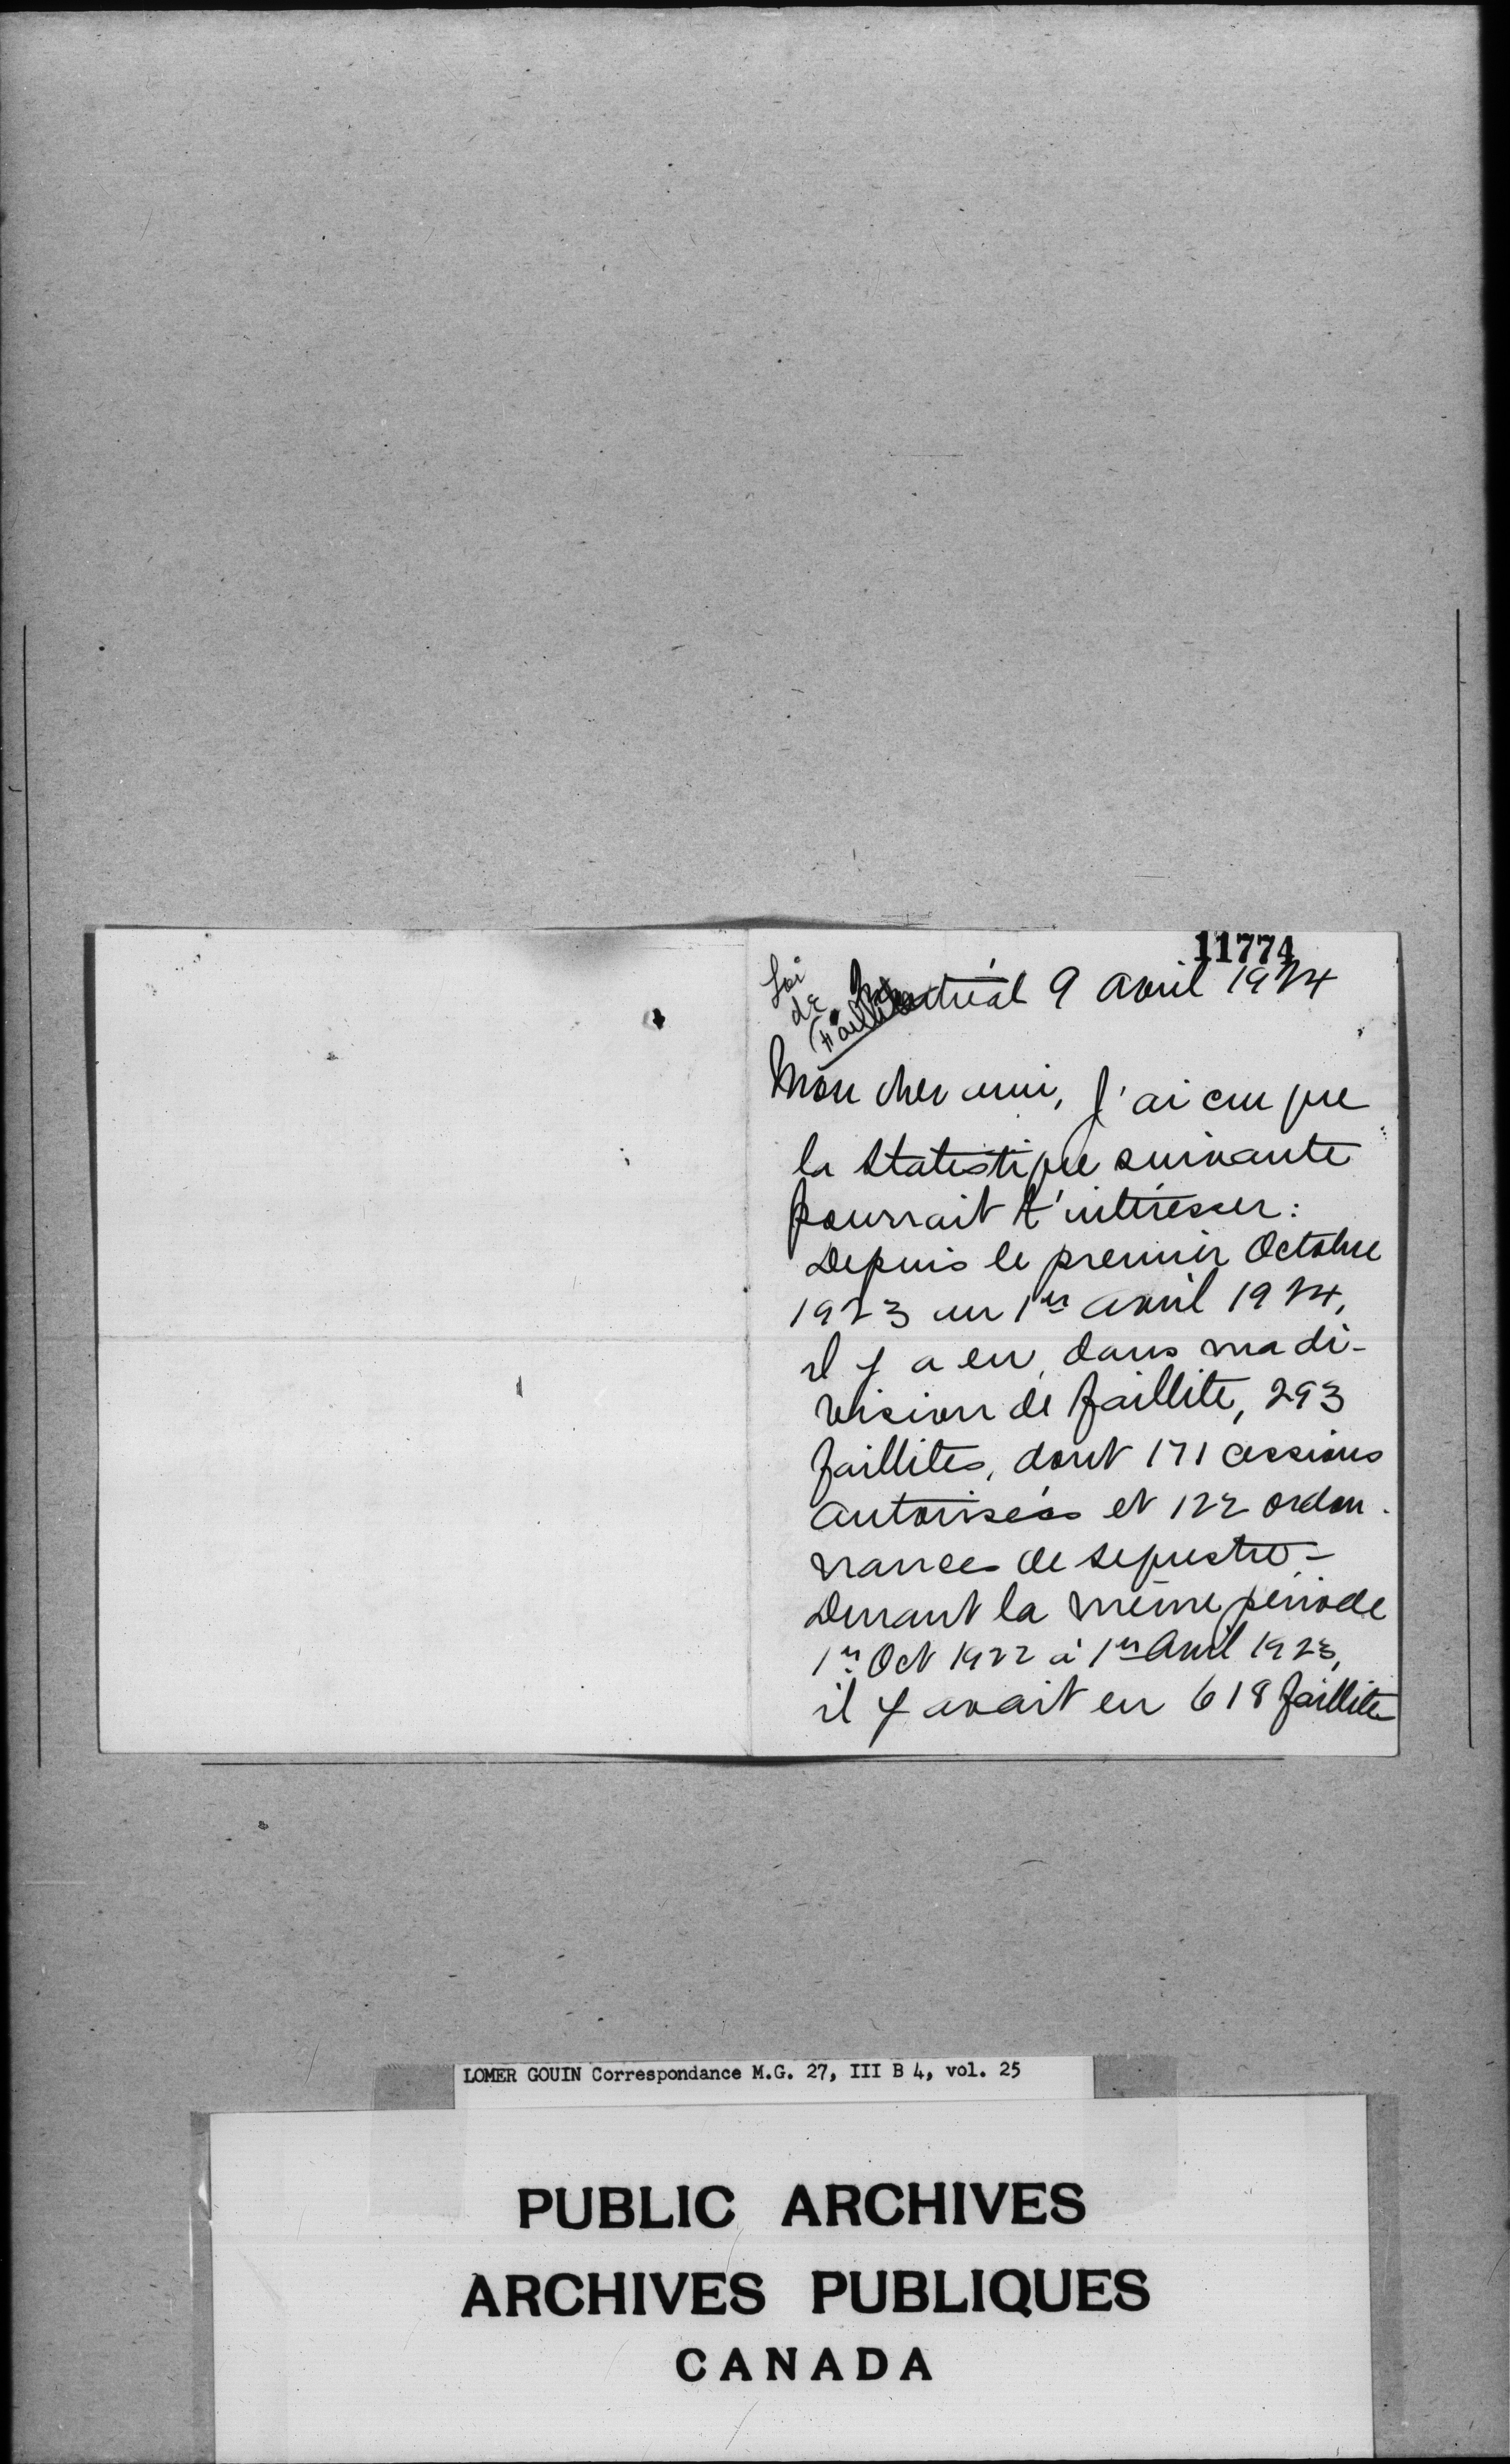 11774
Loi
de
Faillite
Montréal 9 avril 1924
Mon cher ami, J'ai cru que
la statistique suivante
pourrait t'intéresser:
Depuis le premier Octobre
1923 au 1er avril 1924,
il y a eu, dans ma di-
vision de faillite, 293
faillites, dont 171 cessions
autorisées et 122 ordon-
nances de sequestre-
Durant la même période
1er Oct 1922 à 1er Avril 1923,
il y avait eu 618 faillites
LOMER GOUIN Correspondance M.G. 27, III B 4, vol. 25
PUBLIC ARCHIVES
ARCHIVES PUBLIQUES
CANADA